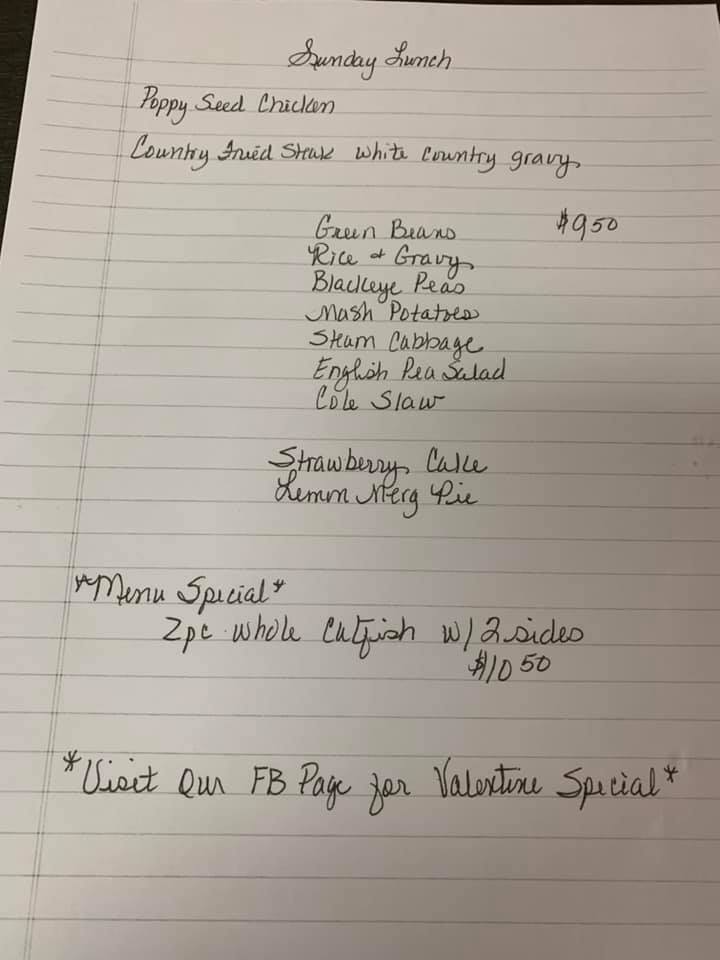 Sunday Lunch
Poppy Seed Chicken
Country Fried Steak White Country gravy
Green Beans $9.50
Rice & Gravy
Blackeye Peas
Mash Potatoes
Steam Cabbage
English Pea Salad
Cole Slaw
Strawberry Cake
Lemon Merg Pie
*Menu Special*
2pc whole Catfish w/ 2 sides
$10.50
*Visit Our FB Page for Valentine Special*